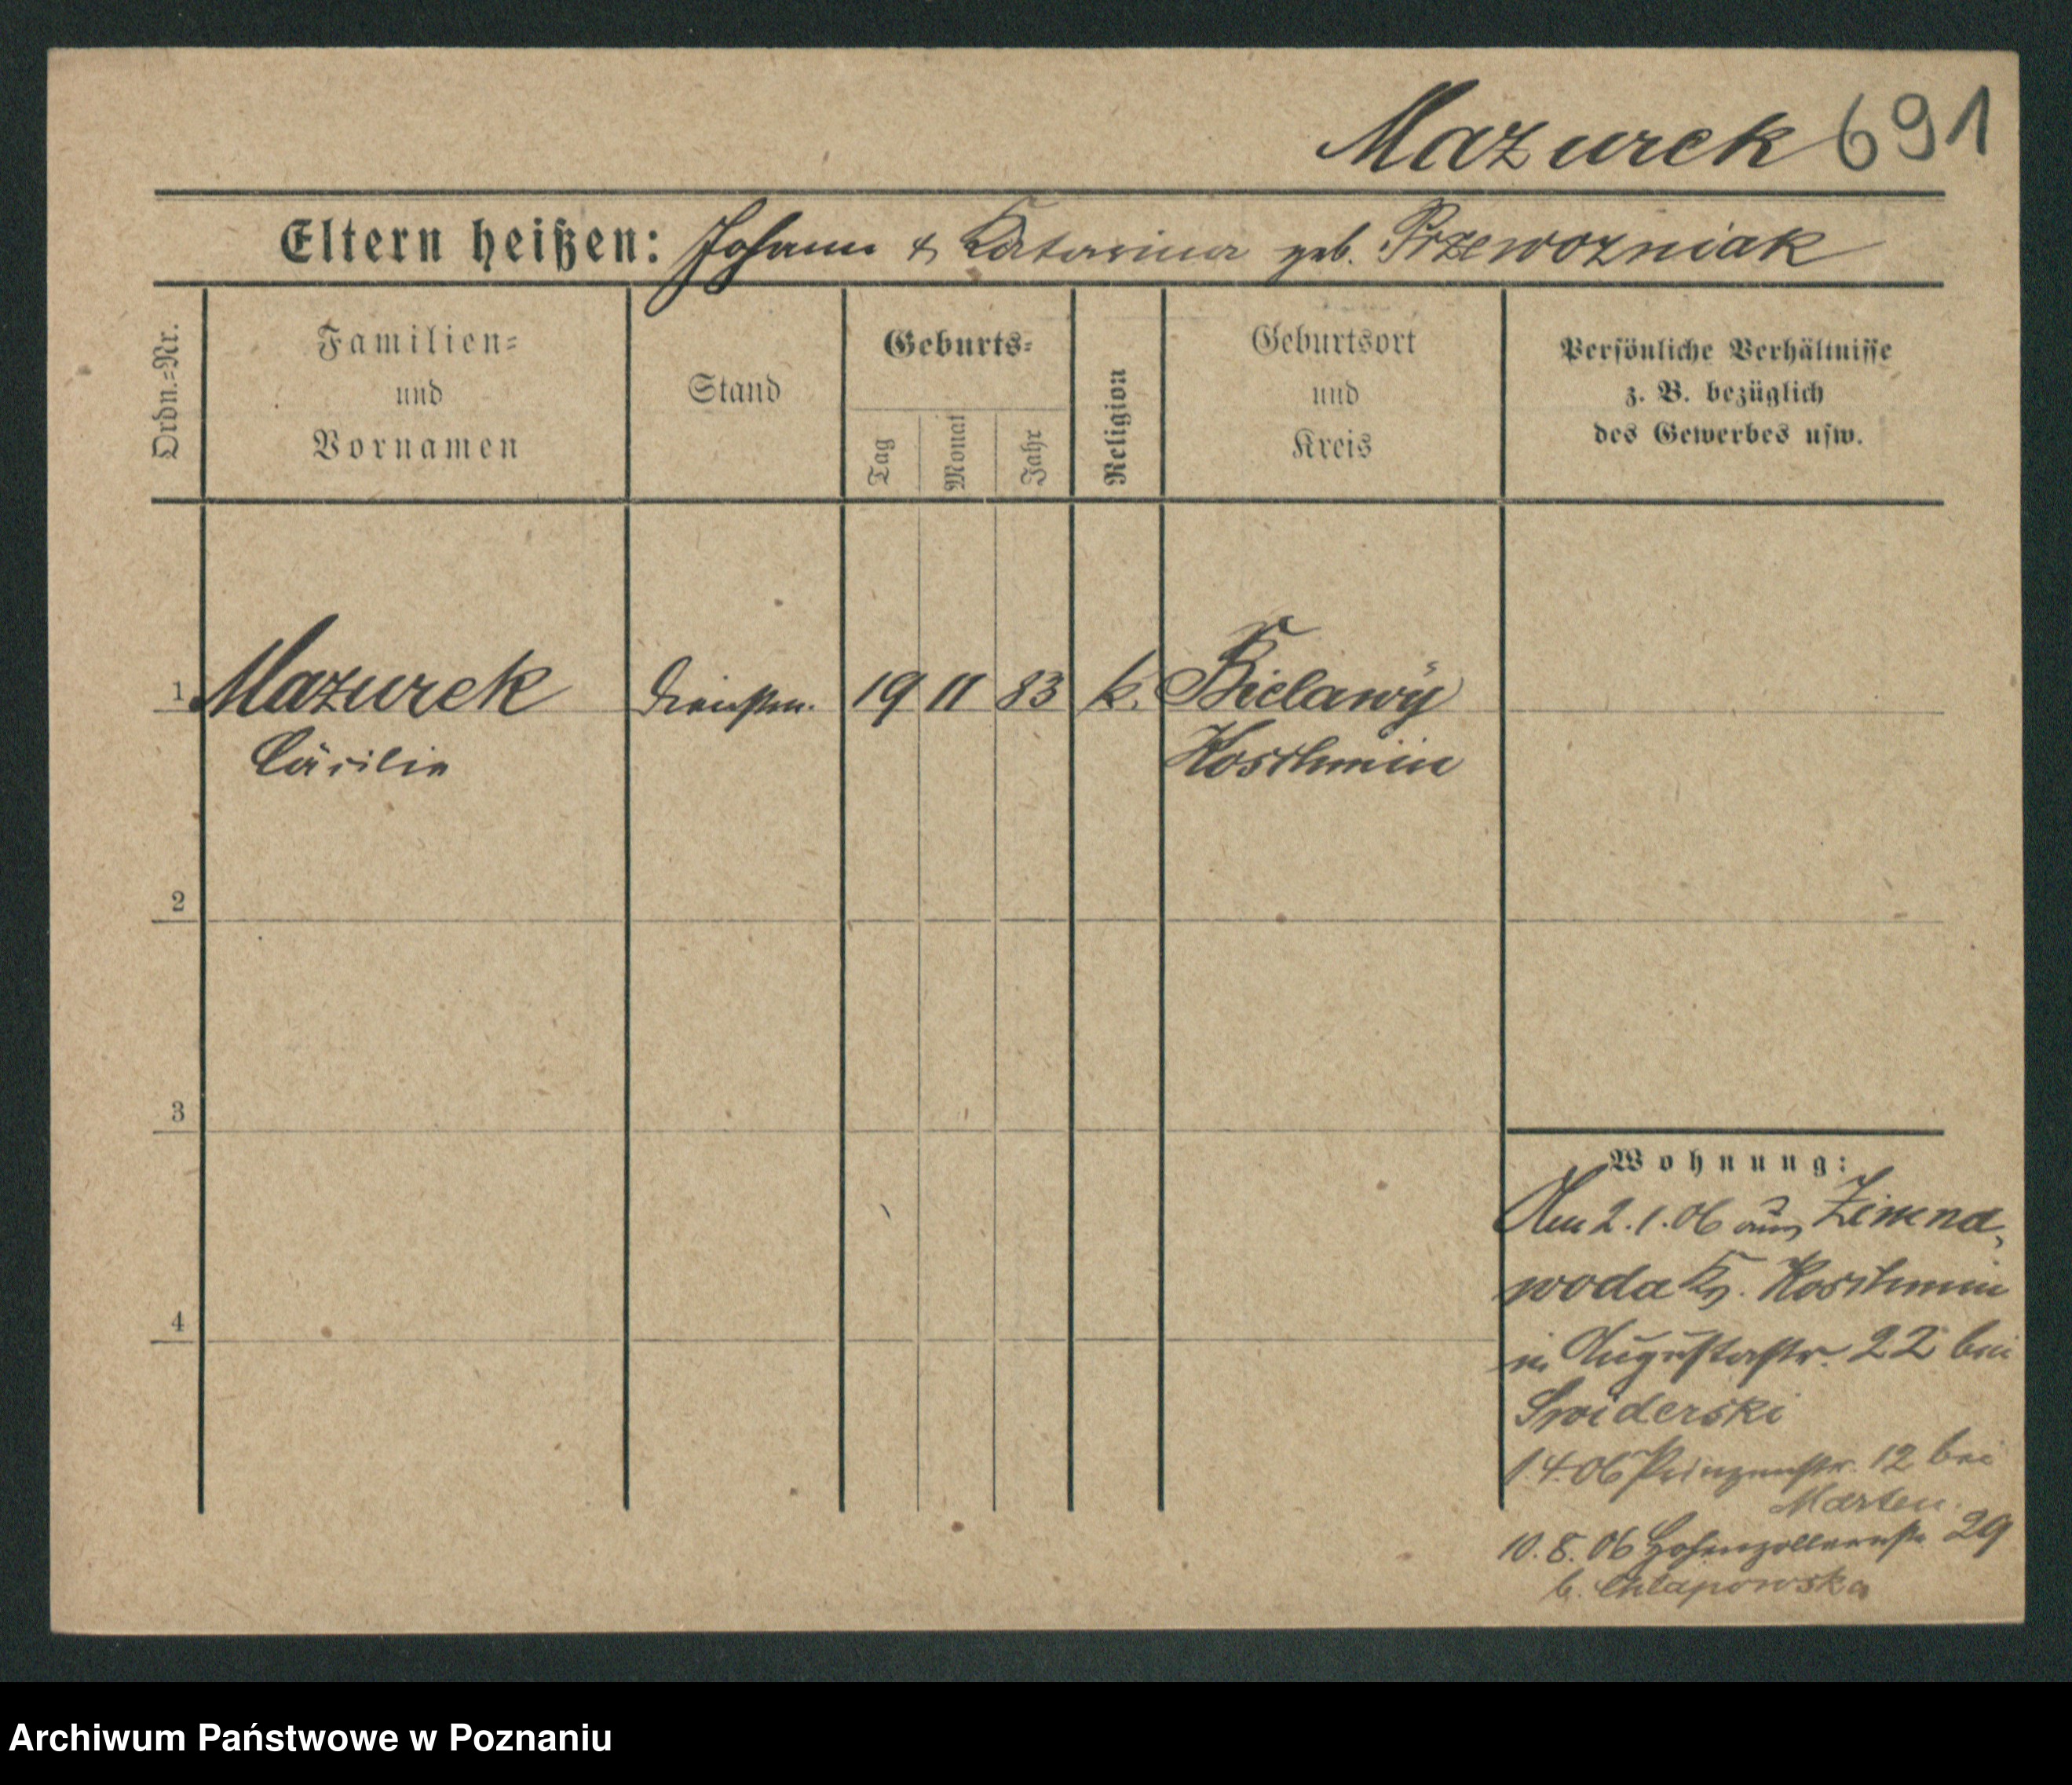 Mazurek 691
Eltern heißen: Johann & Katarina geb. Przewozniak
Ordn.=Nr.
Familien=
und
Vornamen
Stand
Geburts=
Tag
Monat
Jahr
Religion
Geburtsort
und
Kreis
Persönliche Verhältnisse
z. B. bezüglich
des Gewerbes usw.
1 Mazurek 19 11 83 k. Bielawy
Cäcilie Koschmin
2
3
4
Wohnung:
Am 2.1.06 aus Zimna-
woda Kr. Koschmin
n. Augustastr. 22 bei
Swiderski
1.4.06 Prinzenstr. 12 bei
Marten.
10.8.06 Hohenzollernstr 29
b. Chlapowska
Archiwum Państwowe w Poznaniu